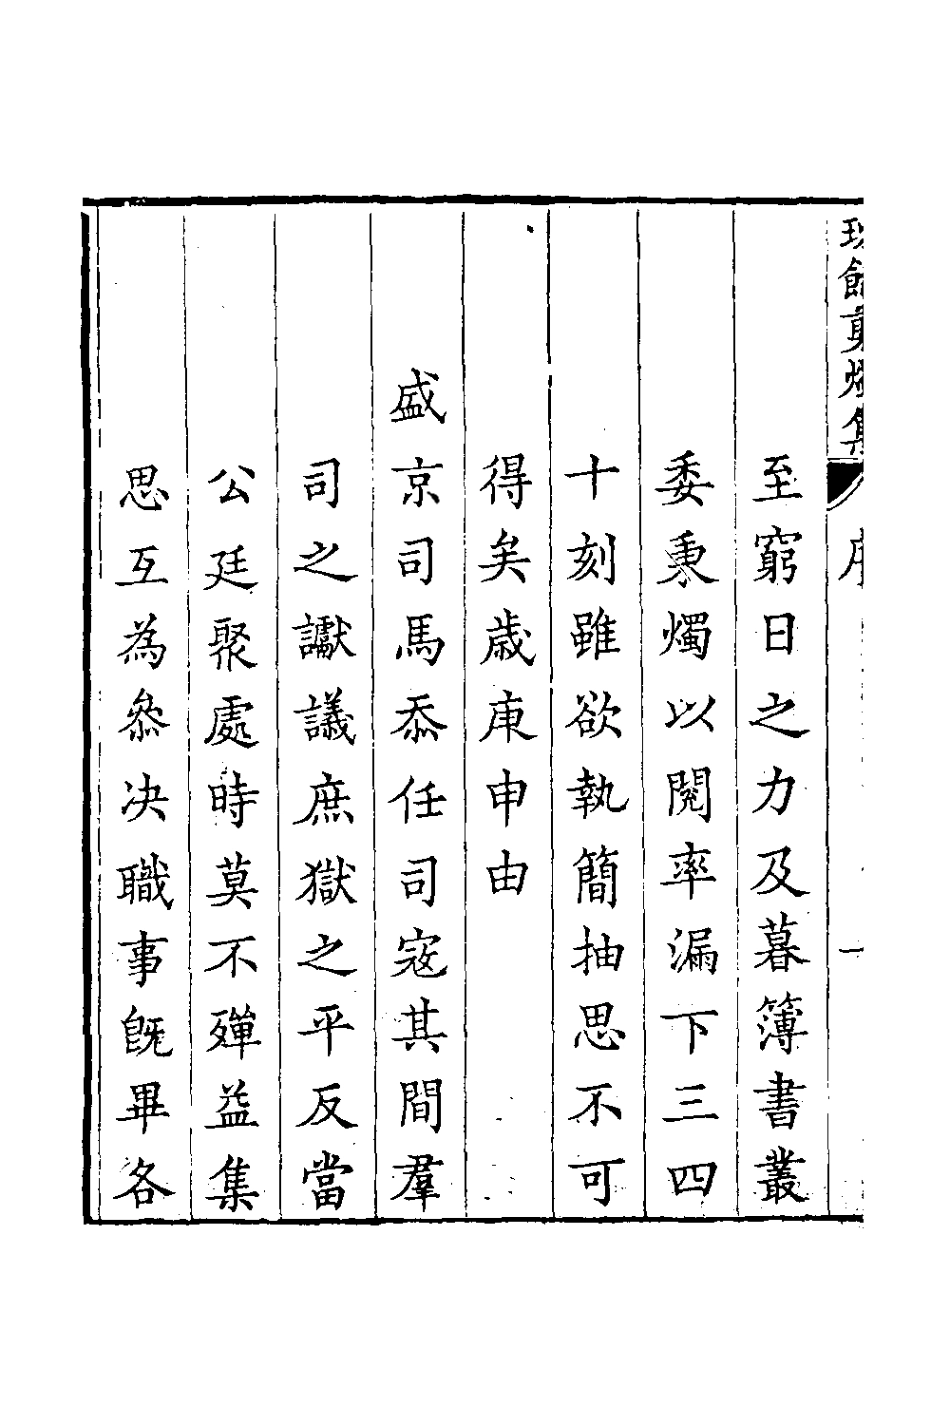 館剪燭集 序 一
至窮日之力及暮簿書叢
委秉燭以閱率漏下三四
十刻雖欲執簡抽思不可
得矣歲庚申由
盛京司馬忝任司寇其間羣
司之讞議庶獄之平反當
公廷聚處時莫不殫益集
思互為叅决職事旣畢各